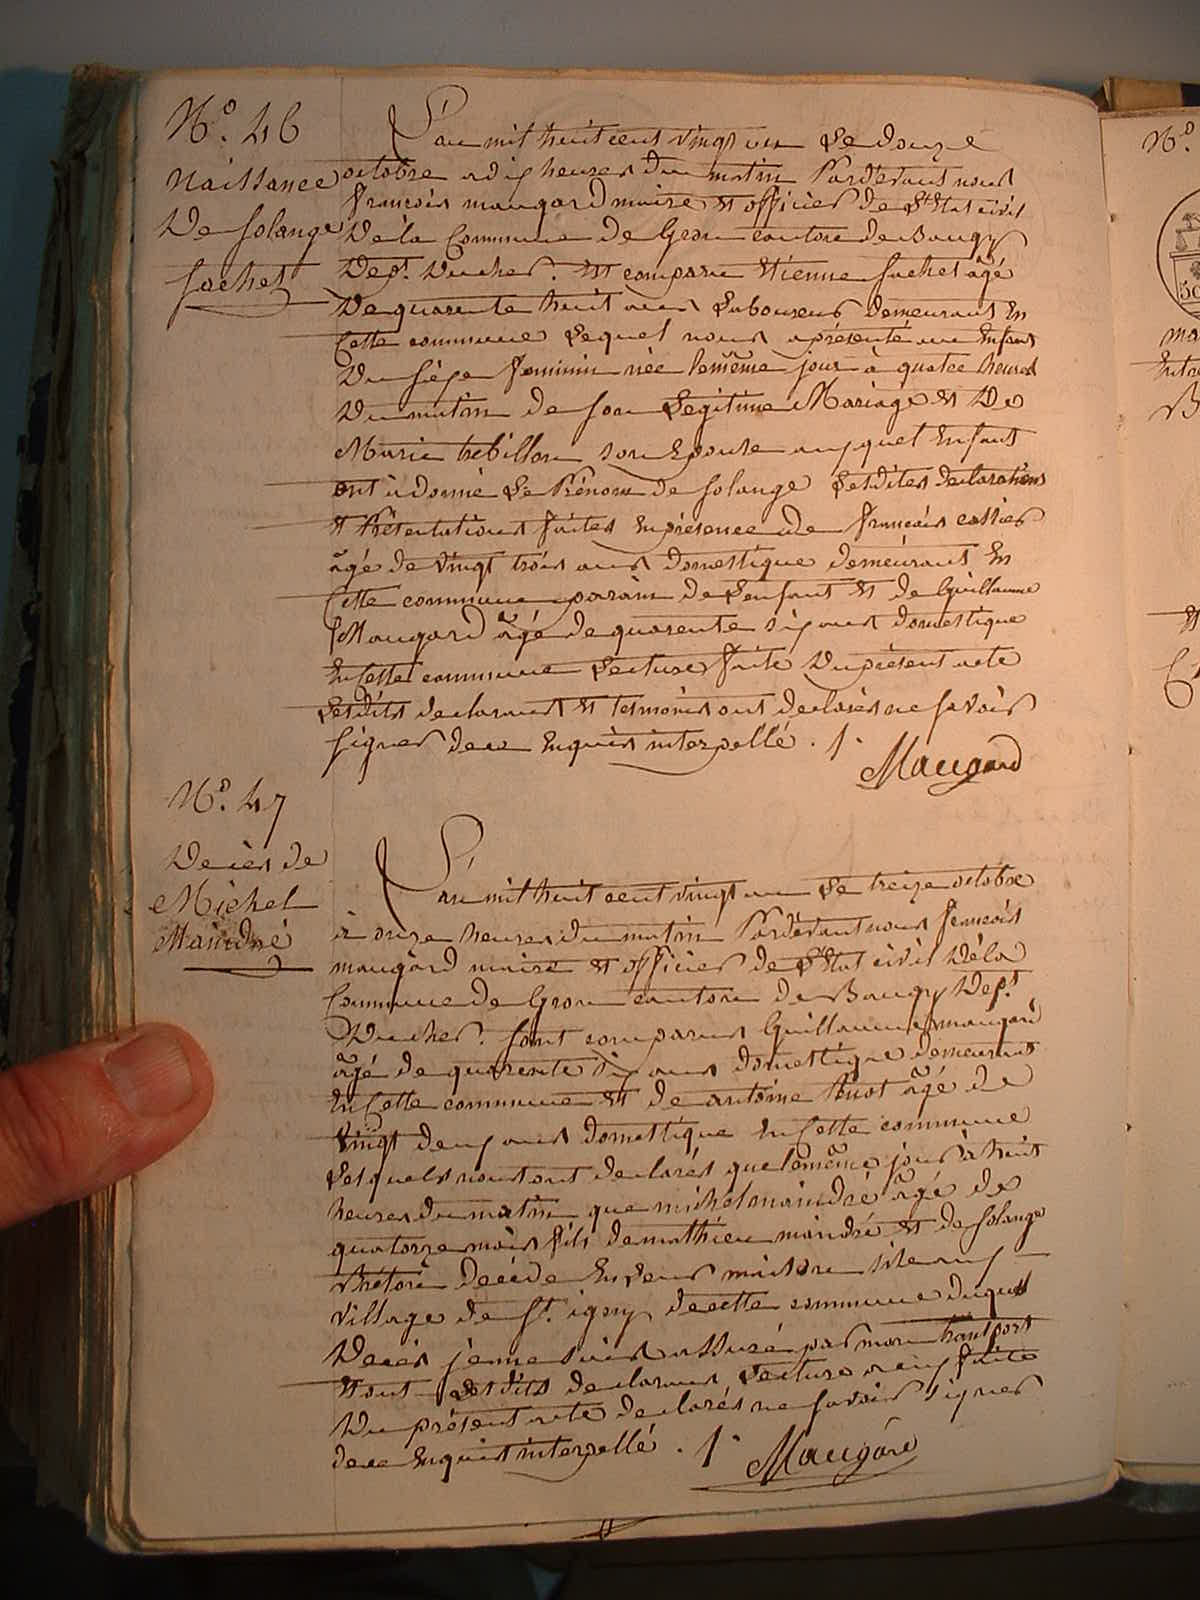 N.° 46
Naissance
De Solange
Sochet
L'an mil huit cent vingt un Le douze
octobre a dix heures du matin Pardevant nous
françois maugard maire et officier de L'Etat civil
De la Commune de Gron canton de Baugy
Dep.t Ducher. Est comparu Etienne Sochet âgé
De quarente huit ans Laboureur demeurant En
Cette commune Lequel nous a présenté un Enfant
Du Séxe féminin née lemême jour à quatre heures
Du matin de son Légitime Mariage et De
Marie trebillon son Epouse auquel Enfant
ont a donné Le Prénom de Solange Lesdites declarations
et Présentations faites En présence de françois
âgé de vingt trois ans domestique demeurant En
Cette commune parain de Lenfant et de Guillaume
Maugard âgé de quarente six ans domestique
En Cette commune Lecture faite Du présent acte
Lesdits declarant et temoins ont declarés ne Savoir
Signer de ce Enquis interpellé. /.
Maugard
N.° 47
Decès de
Michel
Maindré
L'an mil huit cent vingt un Le treize octobre
à onze heures du matin Pardevant nous francois
maugard maire et officier de L'Etat civil De la
Commune de Gron canton de Baugy Dep.t
Ducher. Sont comparus Guillaume maugard
âgé de quarente six ans domestique demeurant
En Cette commune et de antoine âgé de
vingt deux ans domestique En Cette commune
Lesquels nous ont declarés que lemême jour à huit
heures du matin que michel maindré âgé de
quatorze mois fils de mathieu maindré et de Solange
decédé En Leur maison sile au
village de St. igny decette commune duquel
Decès je me suis assuré par mon transport
Et ont Lesdits declarant Lecture a eux faite
Du présent acte declarés ne Savoir signer
de ce Enquis interpellé. /.
Maugard